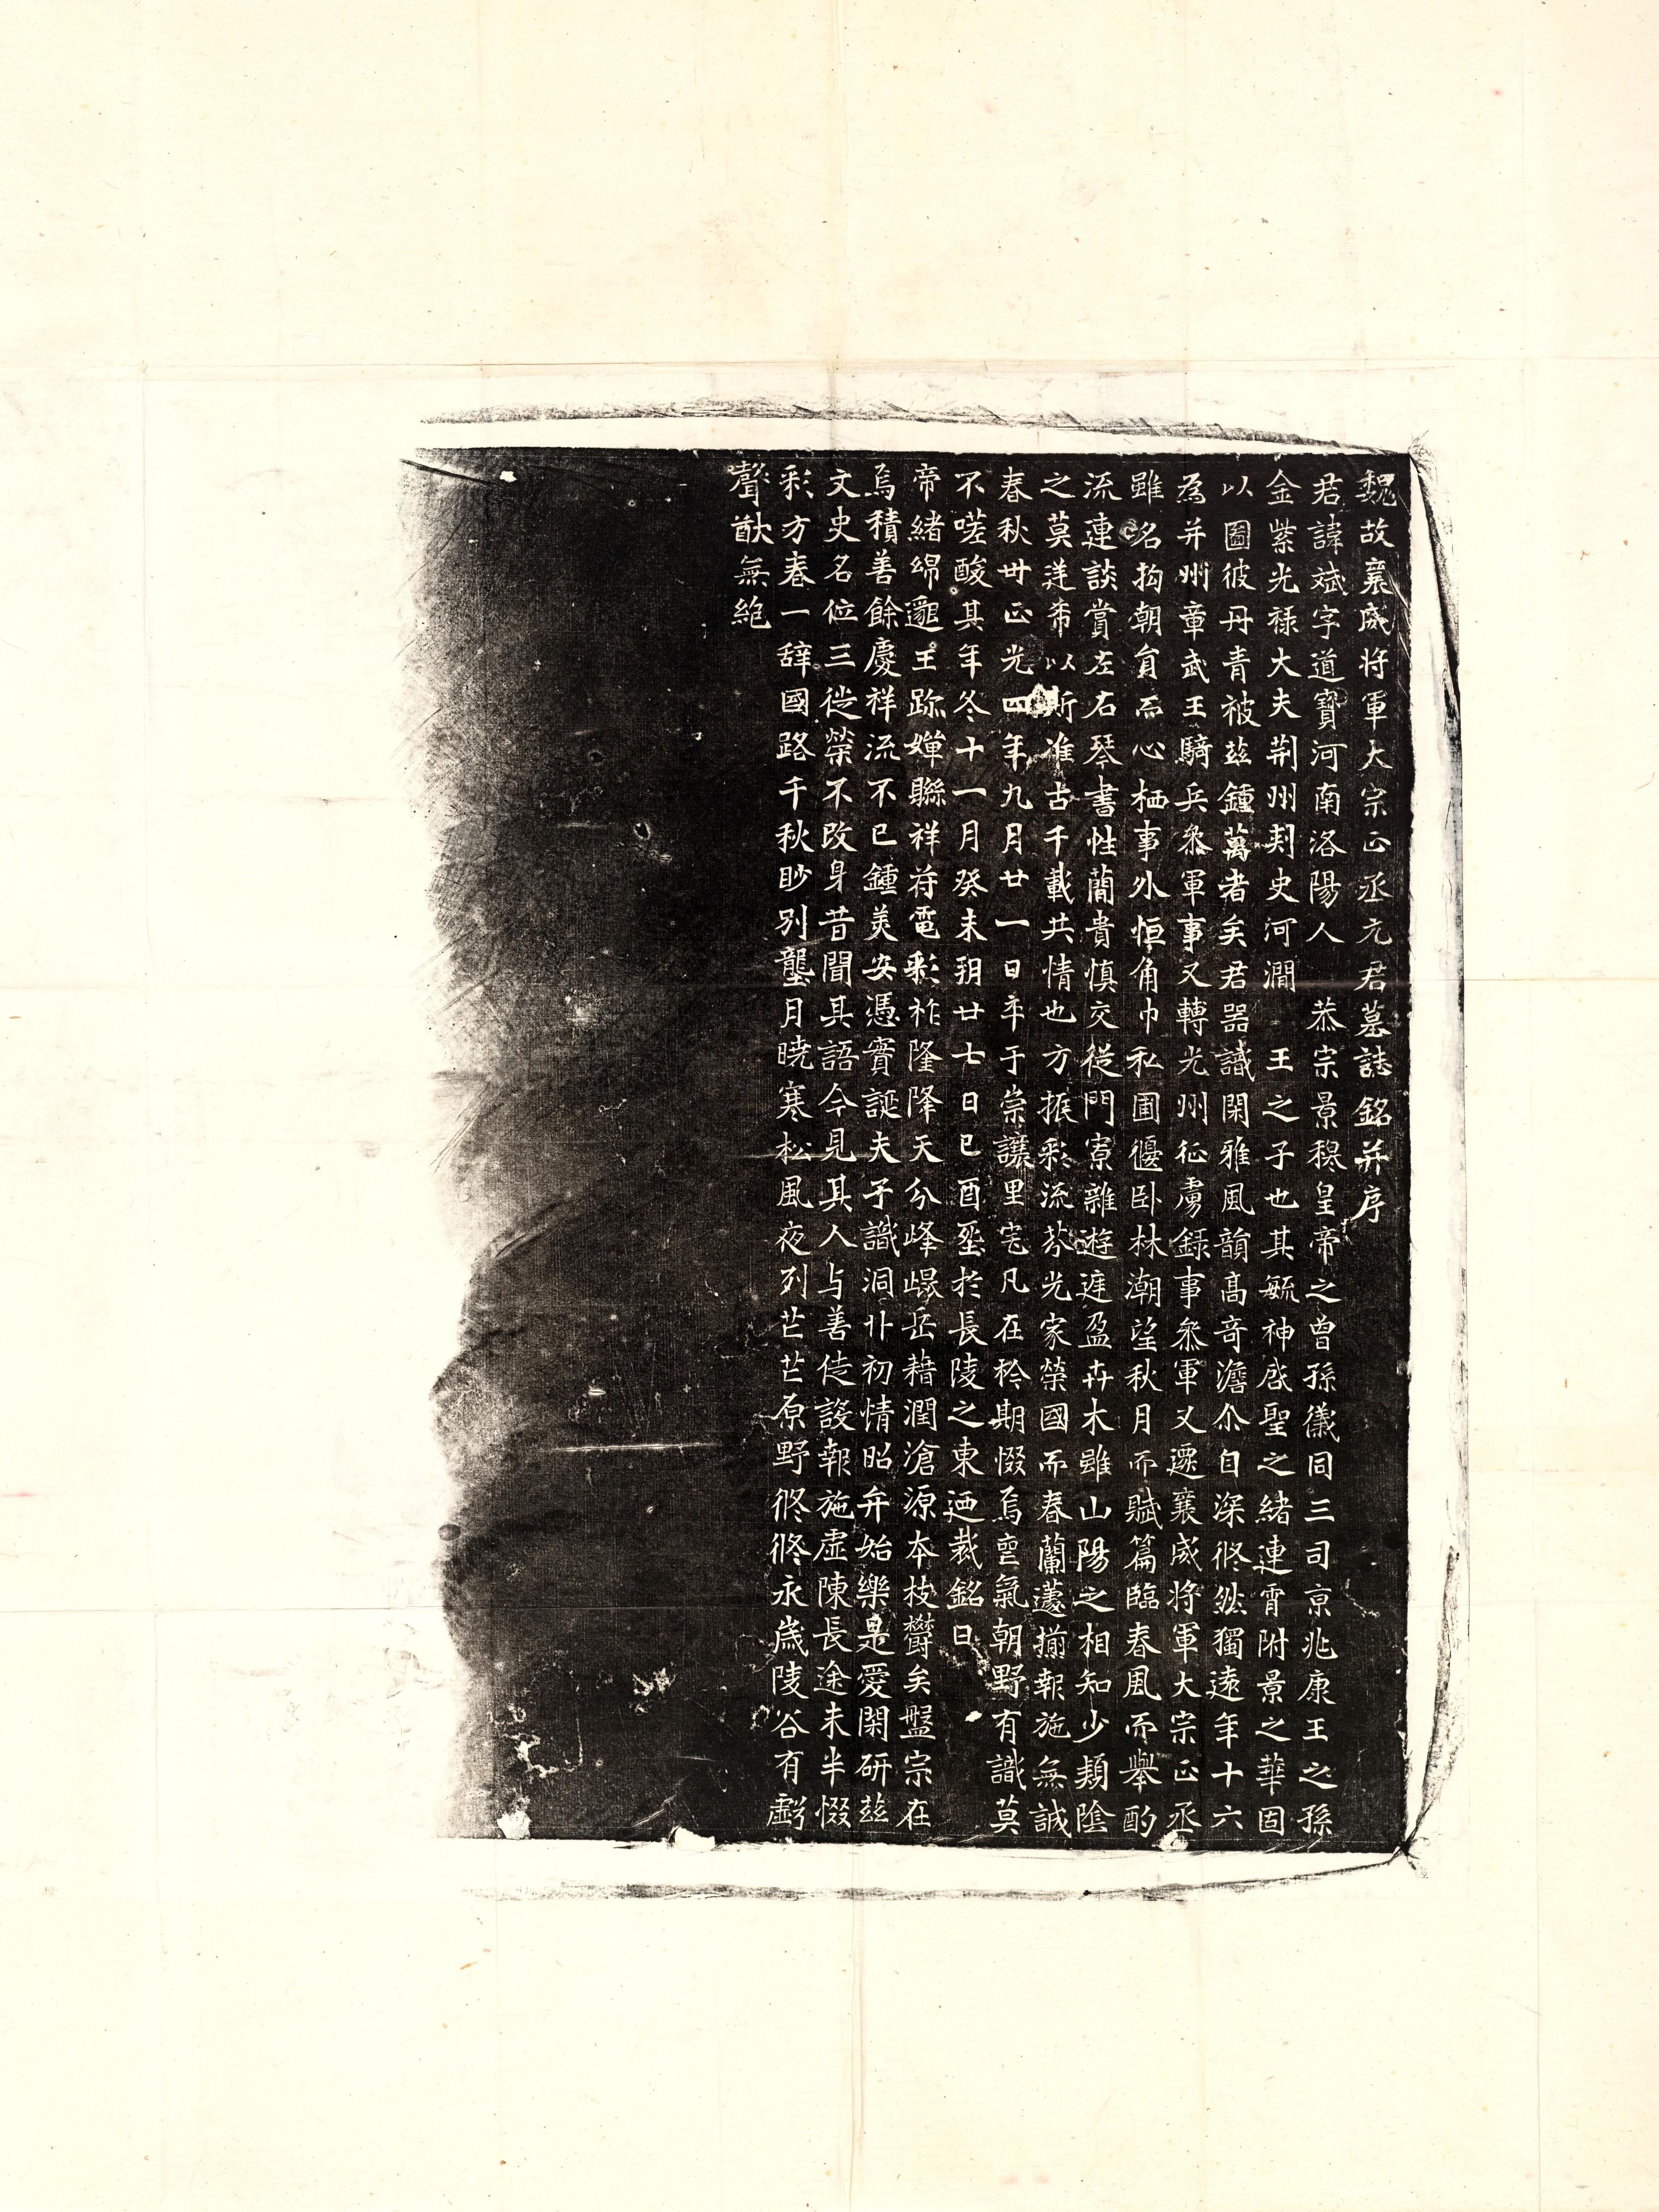 魏故襄威将軍大宗正丞元君墓誌銘并序
君諱斌字道寶河南洛陽人　恭宗景穆皇帝之曾孫儀同三司京兆康王之孫
金紫光祿大夫荊州刾史河澗　王之子也其毓神啓聖之緒連霄附景之華固
以圖彼丹青被茲鍾萬者矣君器識閑雅風韻高奇澹尒自深俢然獨遠年十六
為并州章武王騎兵叅軍事又轉光州征虜錄事叅軍又遷襄威将軍大宗正丞
雖名拘朝員而心栖事外恒角巾私圃偃臥林潮望秋月而賦篇臨春風而舉酌
流連談賞左右琴書性簡貴慎交從門寮雜遊庭盈卉木雖山陽之相知少類陰
之莫逹希以斯准古千載共情也方振彩流芬光家榮國而春蘭遽揃報施無誠
春秋卅正光四年九月廿一日卒于崇讓里宅凡在衿期惙焉垔氣朝野有識莫
不嗟酸其年冬十一月癸未朔廿七日己酉窆於長陵之東迺裁銘曰
帝緒綿邈王跡嬋聯祥苻電彩祚隆降天分峰崐岳藉潤滄源本枝欝矣盤宗在
焉積善餘慶祥流不已鍾美安憑實誕夫子識洞卝初情昭弁始樂是愛閑研茲
文史名位三徙榮不改身昔聞其語今見其人与善徒設報施虛陳長途未半惙
彩方春一辞國路千秋眇別壟月曉寒松風夜列芒芒原野俢俢永歲陵谷有虧
聲猷無絕